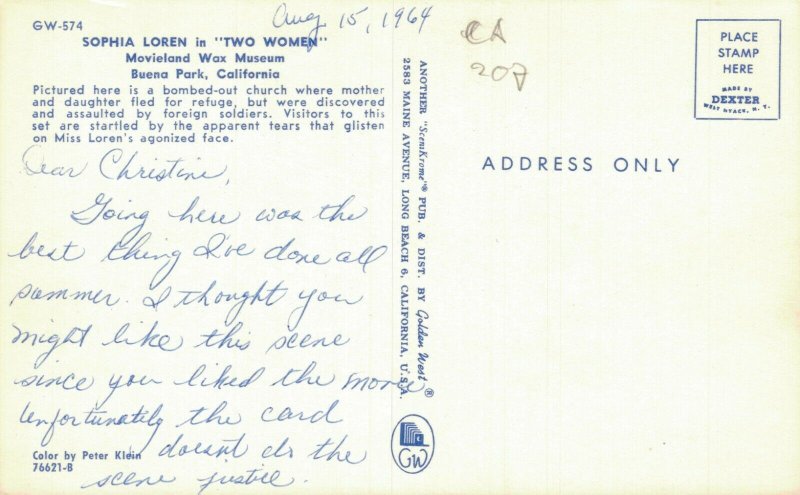 Aug 15, 1964
GW-574
SOPHIA LOREN in "TWO WOMEN"
Movieland Wax Museum
Buena Park, California
Pictured here is a bombed-out church where mother
and daughter fled for refuge, but were discovered
and assaulted by foreign soldiers. Visitors to this
set are startled by the apparent tears that glisten
on Miss Loren's agonized face.
Dear Christine,
Going here was the
best thing I've done all
summer. I thought you
might like this scene
since you liked the movie
Unfortunately the card
doesn't do the
scene justice.
Color by Peter Klein
76621-B
ANOTHER "SceniKrome"® PUB. & DIST. BY Golden West®
2583 MAINE AVENUE, LONG BEACH 6, CALIFORNIA, U.S.A.
GW
CA
207
PLACE
STAMP
HERE
MADE BY
DEXTER
WEST NYACK, N. Y.
ADDRESS ONLY